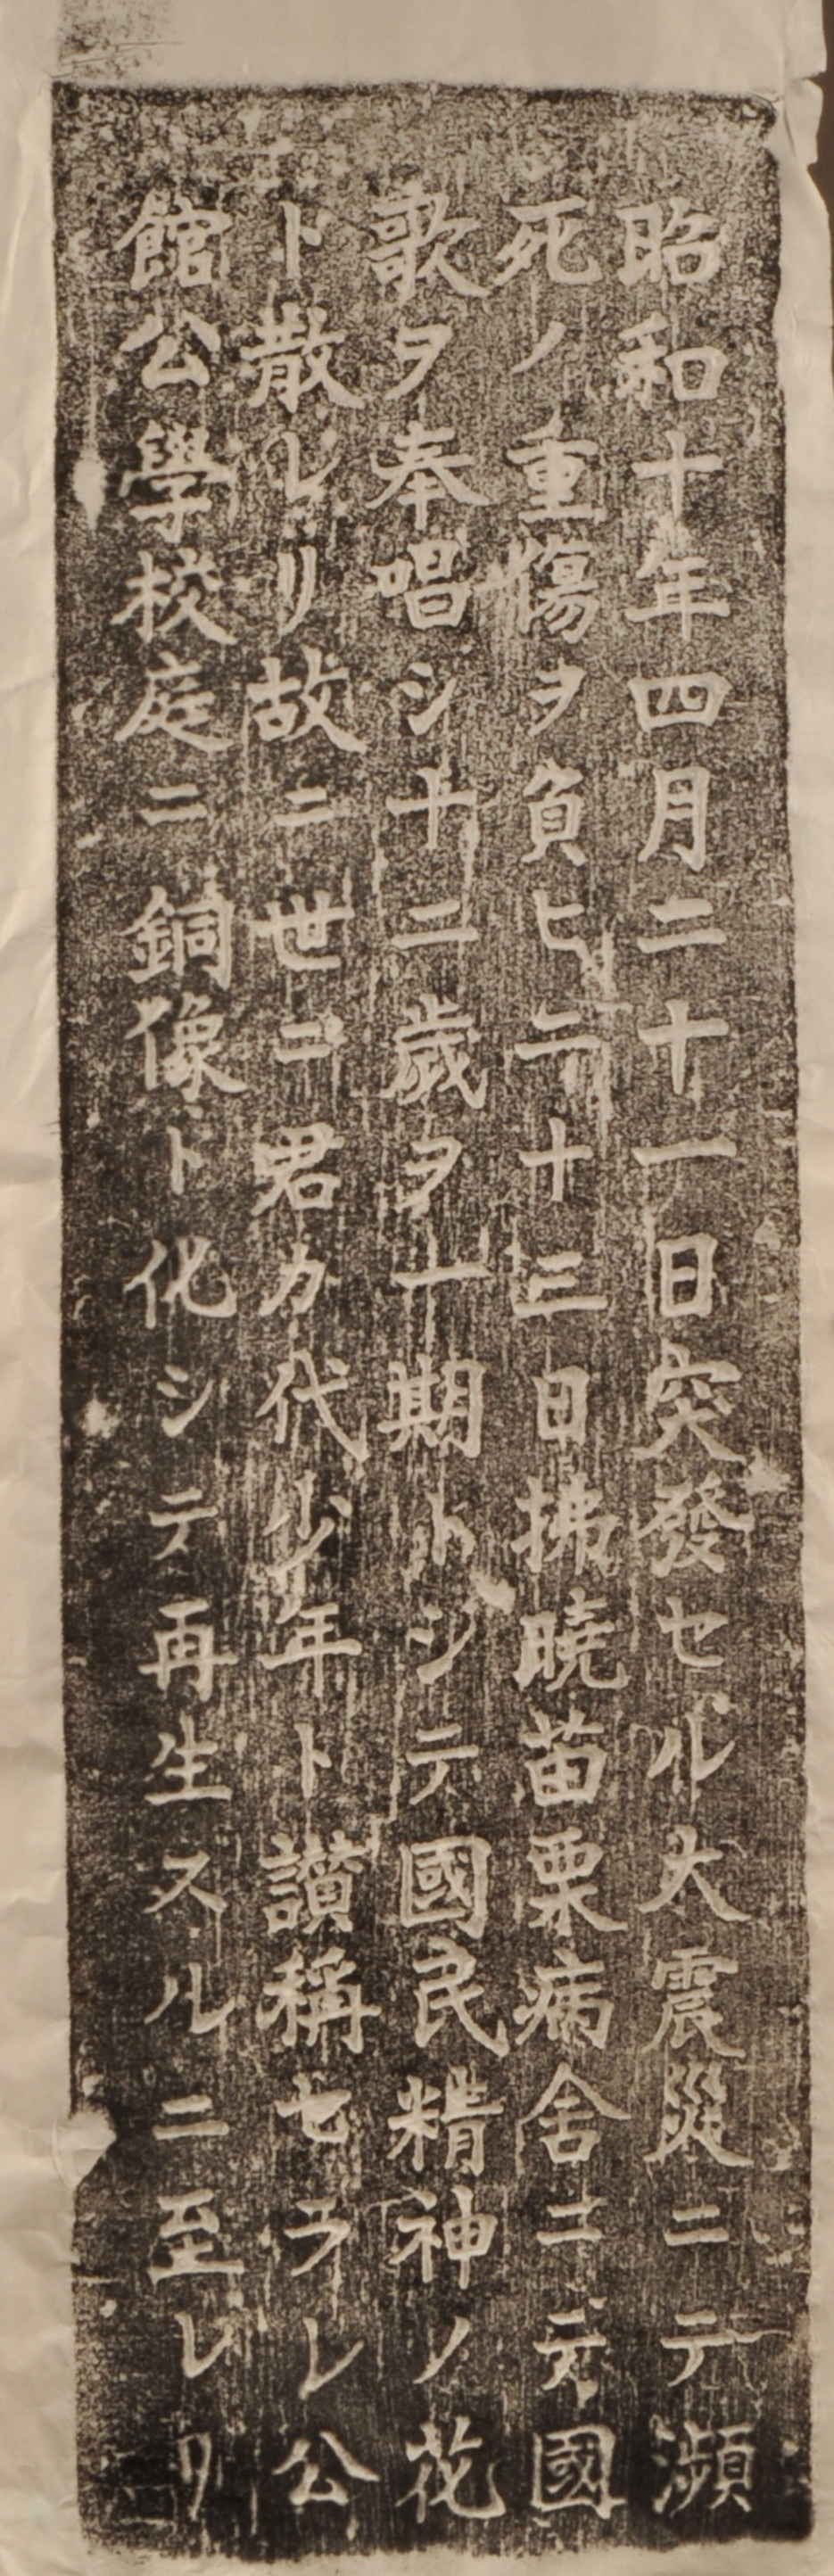 昭和十年四月二十一日突發セル大震災ニテ瀕
死ノ重傷ヲ負ヒ二十三日拂曉苗栗病舍ニテ國
歌ヲ奉唱シ十二歲ヲ一期トシテ國民精神ノ花
ト散レリ故ニ世ニ君カ代少年ト讃稱セラレ公
館公學校庭ニ銅像ト化シテ再生スルニ至レリ